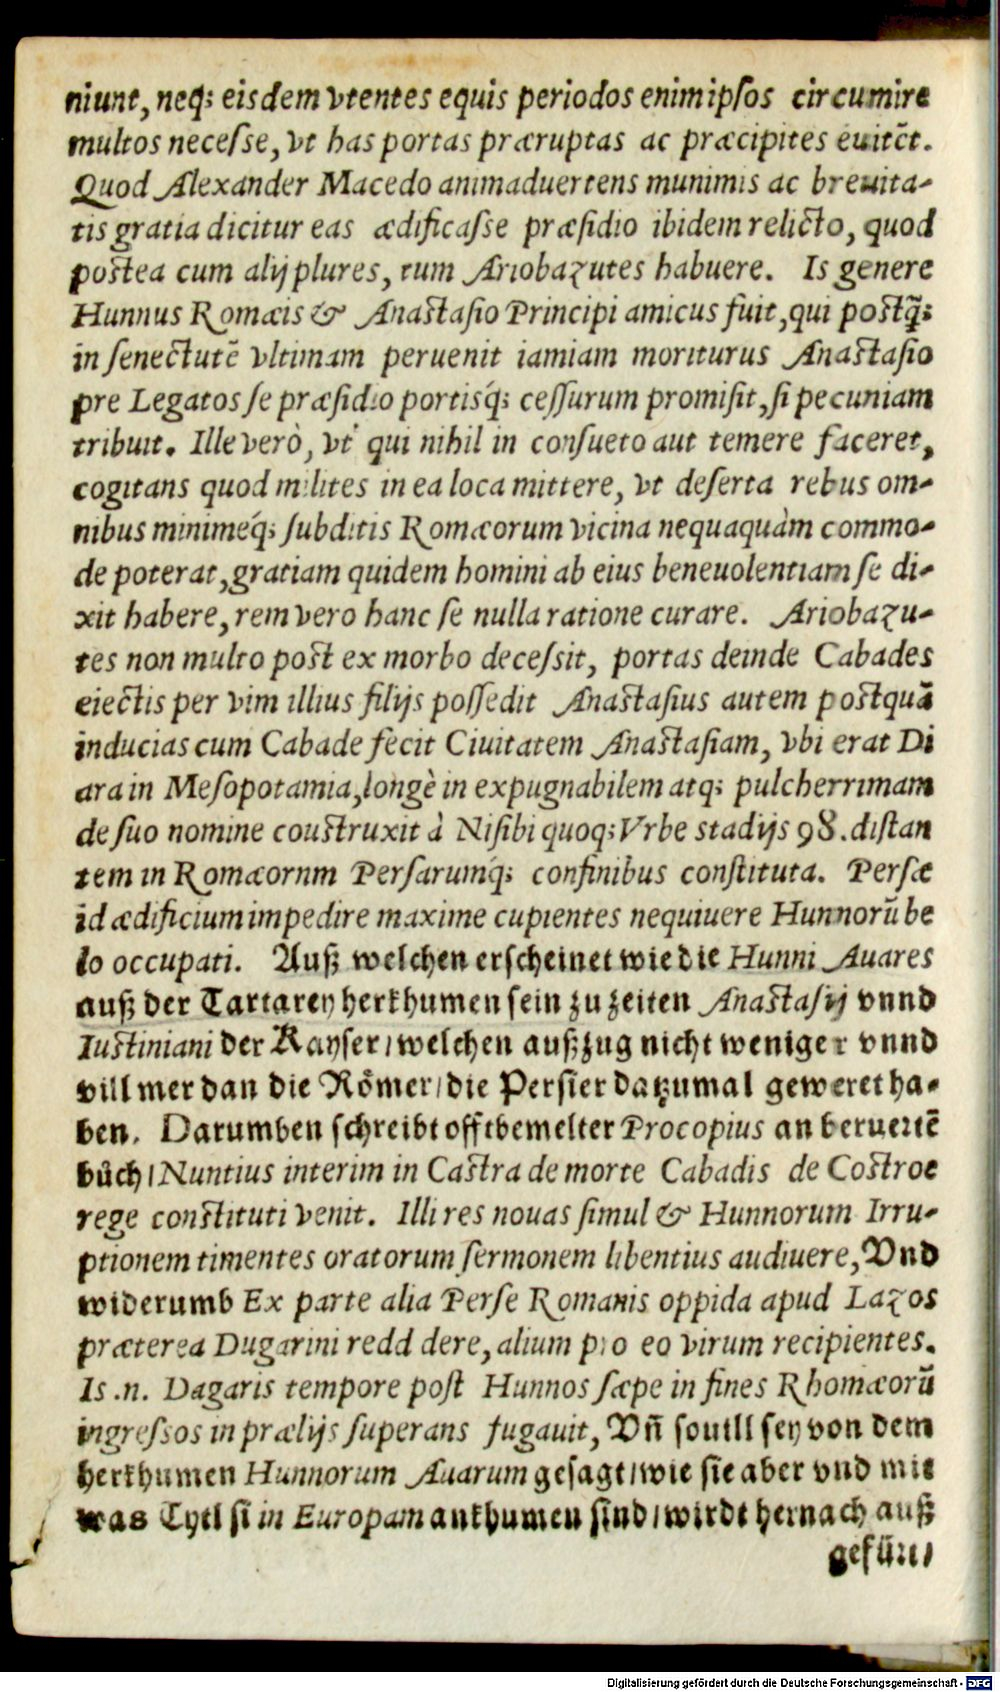 niunt, neq; eisdem vtentes equis periodos enim ipſos circumire
multos neceſse, vt has portas præruptas ac præcipites euitẽt.
Quod Alexander Macedo animaduertens munimis ac breuita-
tis gratia dicitur eas ædificaſse præſidio ibidem relicto, quod
postea cum alij plures, tum Ariobazutes habuere. Is genere
Hunnus Romæis & Anastaſio Principi amicus fuit, qui postq̃;
in ſenectutẽ vltimam peruenit iamiam moriturus Anastaſio
pre Legatos ſe præſidio portisq́; ceſſurum promiſit, ſi pecuniam
tribuit. Ille verò, vt qui nihil in conſueto aut temere faceret,
cogitans quod milites in ea loca mittere, vt deſerta rebus om-
nibus minimeq́; ſubditis Romæorum vicina nequaquàm commo-
de poterat, gratiam quidem homini ab eius beneuolentiam ſe di-
xit habere, rem vero hanc ſe nulla ratione curare. Ariobazu-
tes non multo post ex morbo deceſsit, portas deinde Cabades
eiectis per vim illius filijs poſſedit Anastaſius autem postquã
inducias cum Cabade fecit Ciuitatem Anastaſiam, vbi erat Di
ara in Meſopotamia, longè in expugnabilem atq; pulcherrimam
de ſuo nomine coustruxit à Niſibi quoq; Vrbe stadijs 98. distan
tem in Romæornm Perſarumq́; confinibus conſtituta. Perſæ
id ædificium impedire maxime cupientes nequiuere Hunnorũ be
lo occupati. Auß welchen erſcheinet wie die Hunni Auares
auß der Tartarey herkhumen ſein zu zeiten Anastaſij vnnd
Iustiniani der Kayſer / welchen außzug nicht weniger vnnd
vill mer dan die Römer / die Perſier datzumal geweret ha-
ben. Darumben ſchreibt offtbemelter Procopius an beruertẽ
bůch / Nuntius interim in Castra de morte Cabadis de Costroe
rege constituti venit. Illi res nouas ſimul & Hunnorum Irru-
ptionem timentes oratorum ſermonem libentius audiuere, Vnd
widerumb Ex parte alia Perſe Romanis oppida apud Lazos
præterea Dugarini redd dere, alium pro eo virum recipientes.
Is .n. Dagaris tempore poſt Hunnos ſæpe in fines Rhomæorũ
ingreſsos in prælijs ſuperans fugauit, Vñ ſouill ſey von dem
herkhumen Hunnorum Auarum geſagt / wie ſie aber vnd mit
was Tytl ſi in Europam ankhumen ſind / wirdt hernach auß
gefürt /
Digitalisierung gefördert durch die Deutsche Forschungsgemeinschaft - DFG